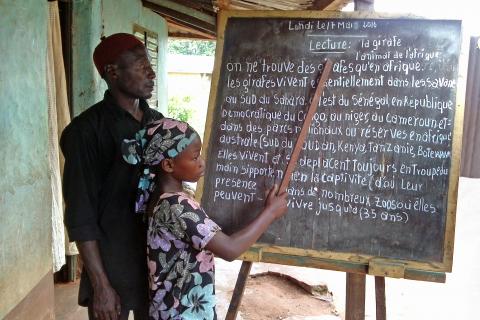 Lundi le 7 Mars 2016
Lecture: la girafe
l'animal de l'afrique
on ne trouve des girafes qu'en afrique.
les girafes vivent essentiellement dans les savane
au Sud du Sahara, l'est du Sénégal, en République
Démocratique du Congo, au niger, au cameroun et
dans des parcs nationaux ou réserves en afrique
australe (Sud du Soudan, Kenya, Tanzanie, Botswana
Elles vivent et se déplacent toujours en troupeau
main supporte la captivité (d'où leur
présence dans de nombreux zoos où elles
peuvent vivre jusqu'à (35 ans)